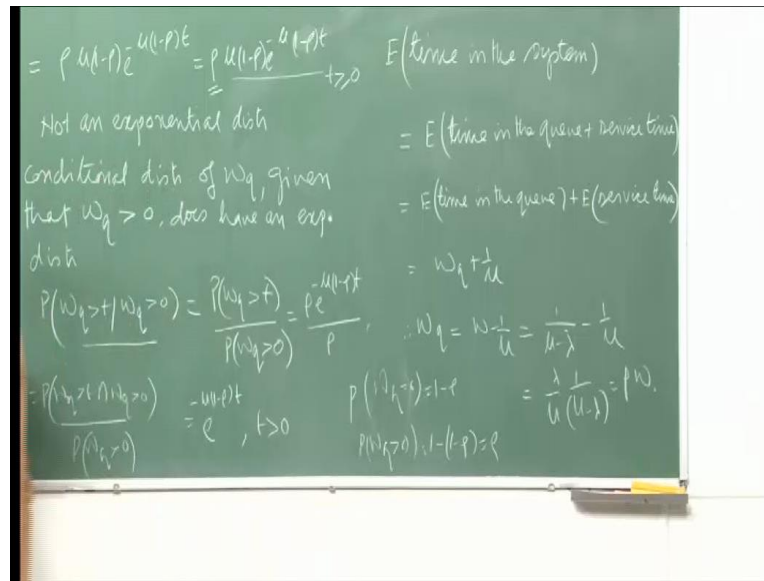 = ρ μ(1-ρ)e^{-μ(1-ρ)t} = ρ μ(1-ρ)e^{-μ(1-ρ)t} t≥0
Not an exponential dist
conditional dist of Wq, given
that Wq > 0, does have an exp.
dist
P(Wq>t/Wq>0) = P(Wq>t)/P(Wq>0) = ρe^{-μ(1-ρ)t}/ρ,
= P(Wq>t ∩ Wq>0)/P(Wq>0) = e^{-μ(1-ρ)t}, t>0
E(time in the system)
= E(time in the queue + service time)
= E(time in the queue) + E(service time)
= Wq + 1/μ
∴ Wq = W - 1/μ = 1/(μ-λ) - 1/μ
= λ/μ 1/(μ-λ) = ρW.
P(Wq=0)=1-ρ
P(Wq>0)=1-(1-ρ)=ρ